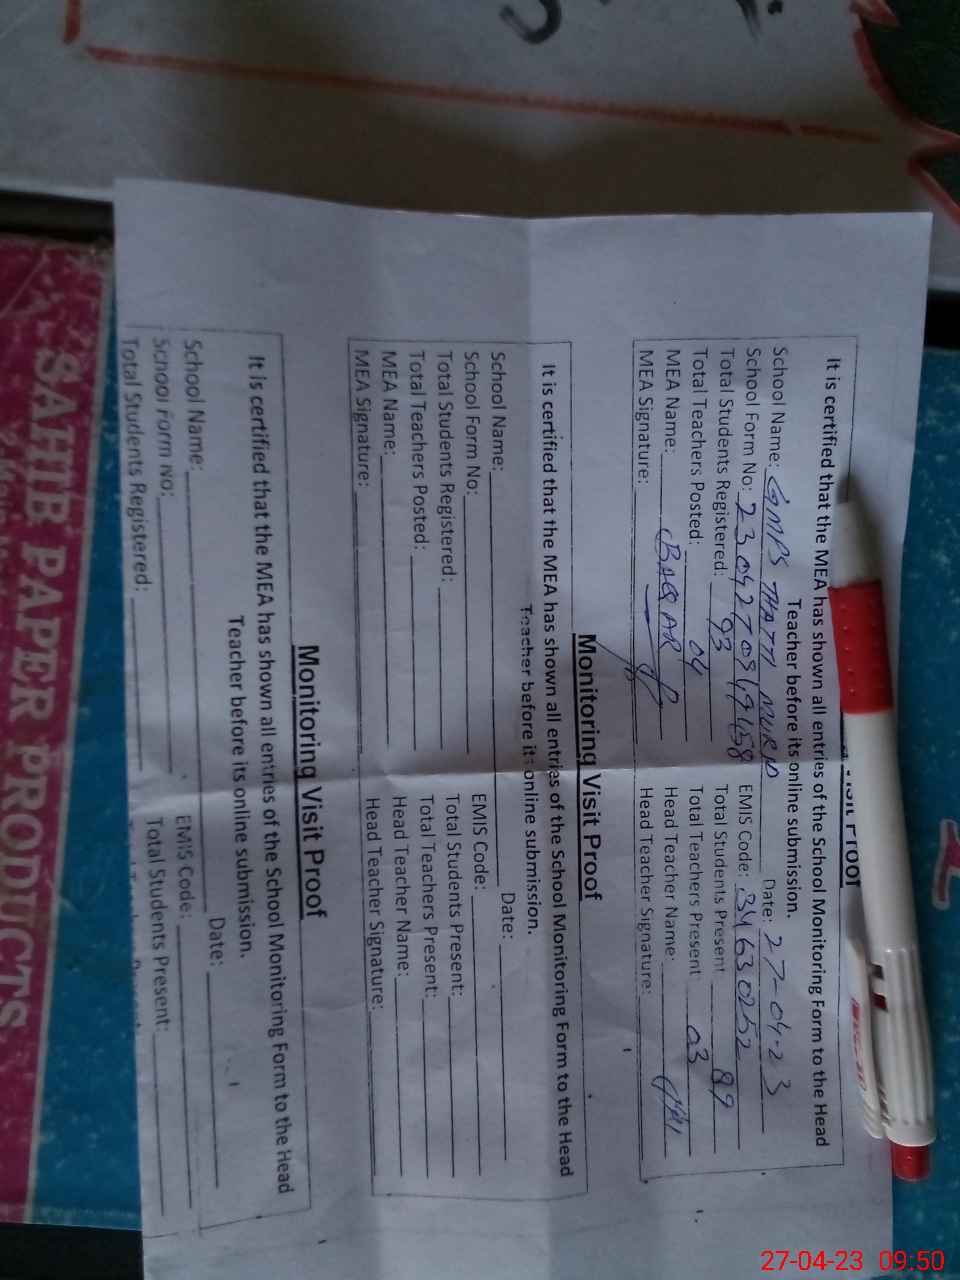 Visit Proof
It is certified that the MEA has shown all entries of the School Monitoring Form to the Head
Teacher before its online submission.
School Name: GMPS THATTI MURID Date: 27-04-23
School Form No: EMIS Code: 34630252
Total Students Registered: 93 Total Students Present 89
Total Teachers Posted: 04 Total Teachers Present 03
MEA Name: BAQAR Head Teacher Name:
MEA Signature: Head Teacher Signature:
Monitoring Visit Proof
It is certified that the MEA has shown all entries of the School Monitoring Form to the Head
Teacher before its online submission.
School Name: Date:
School Form No: EMIS Code:
Total Students Registered: Total Students Present:
Total Teachers Posted: Total Teachers Present:
MEA Name: Head Teacher Name:
MEA Signature: Head Teacher Signature:
Monitoring Visit Proof
It is certified that the MEA has shown all entries of the School Monitoring Form to the Head
Teacher before its online submission.
School Name: Date:
School Form No: EMIS Code:
Total Students Registered: Total Students Present:
SAHIB PAPER PRODUCTS
27-04-23 09:50